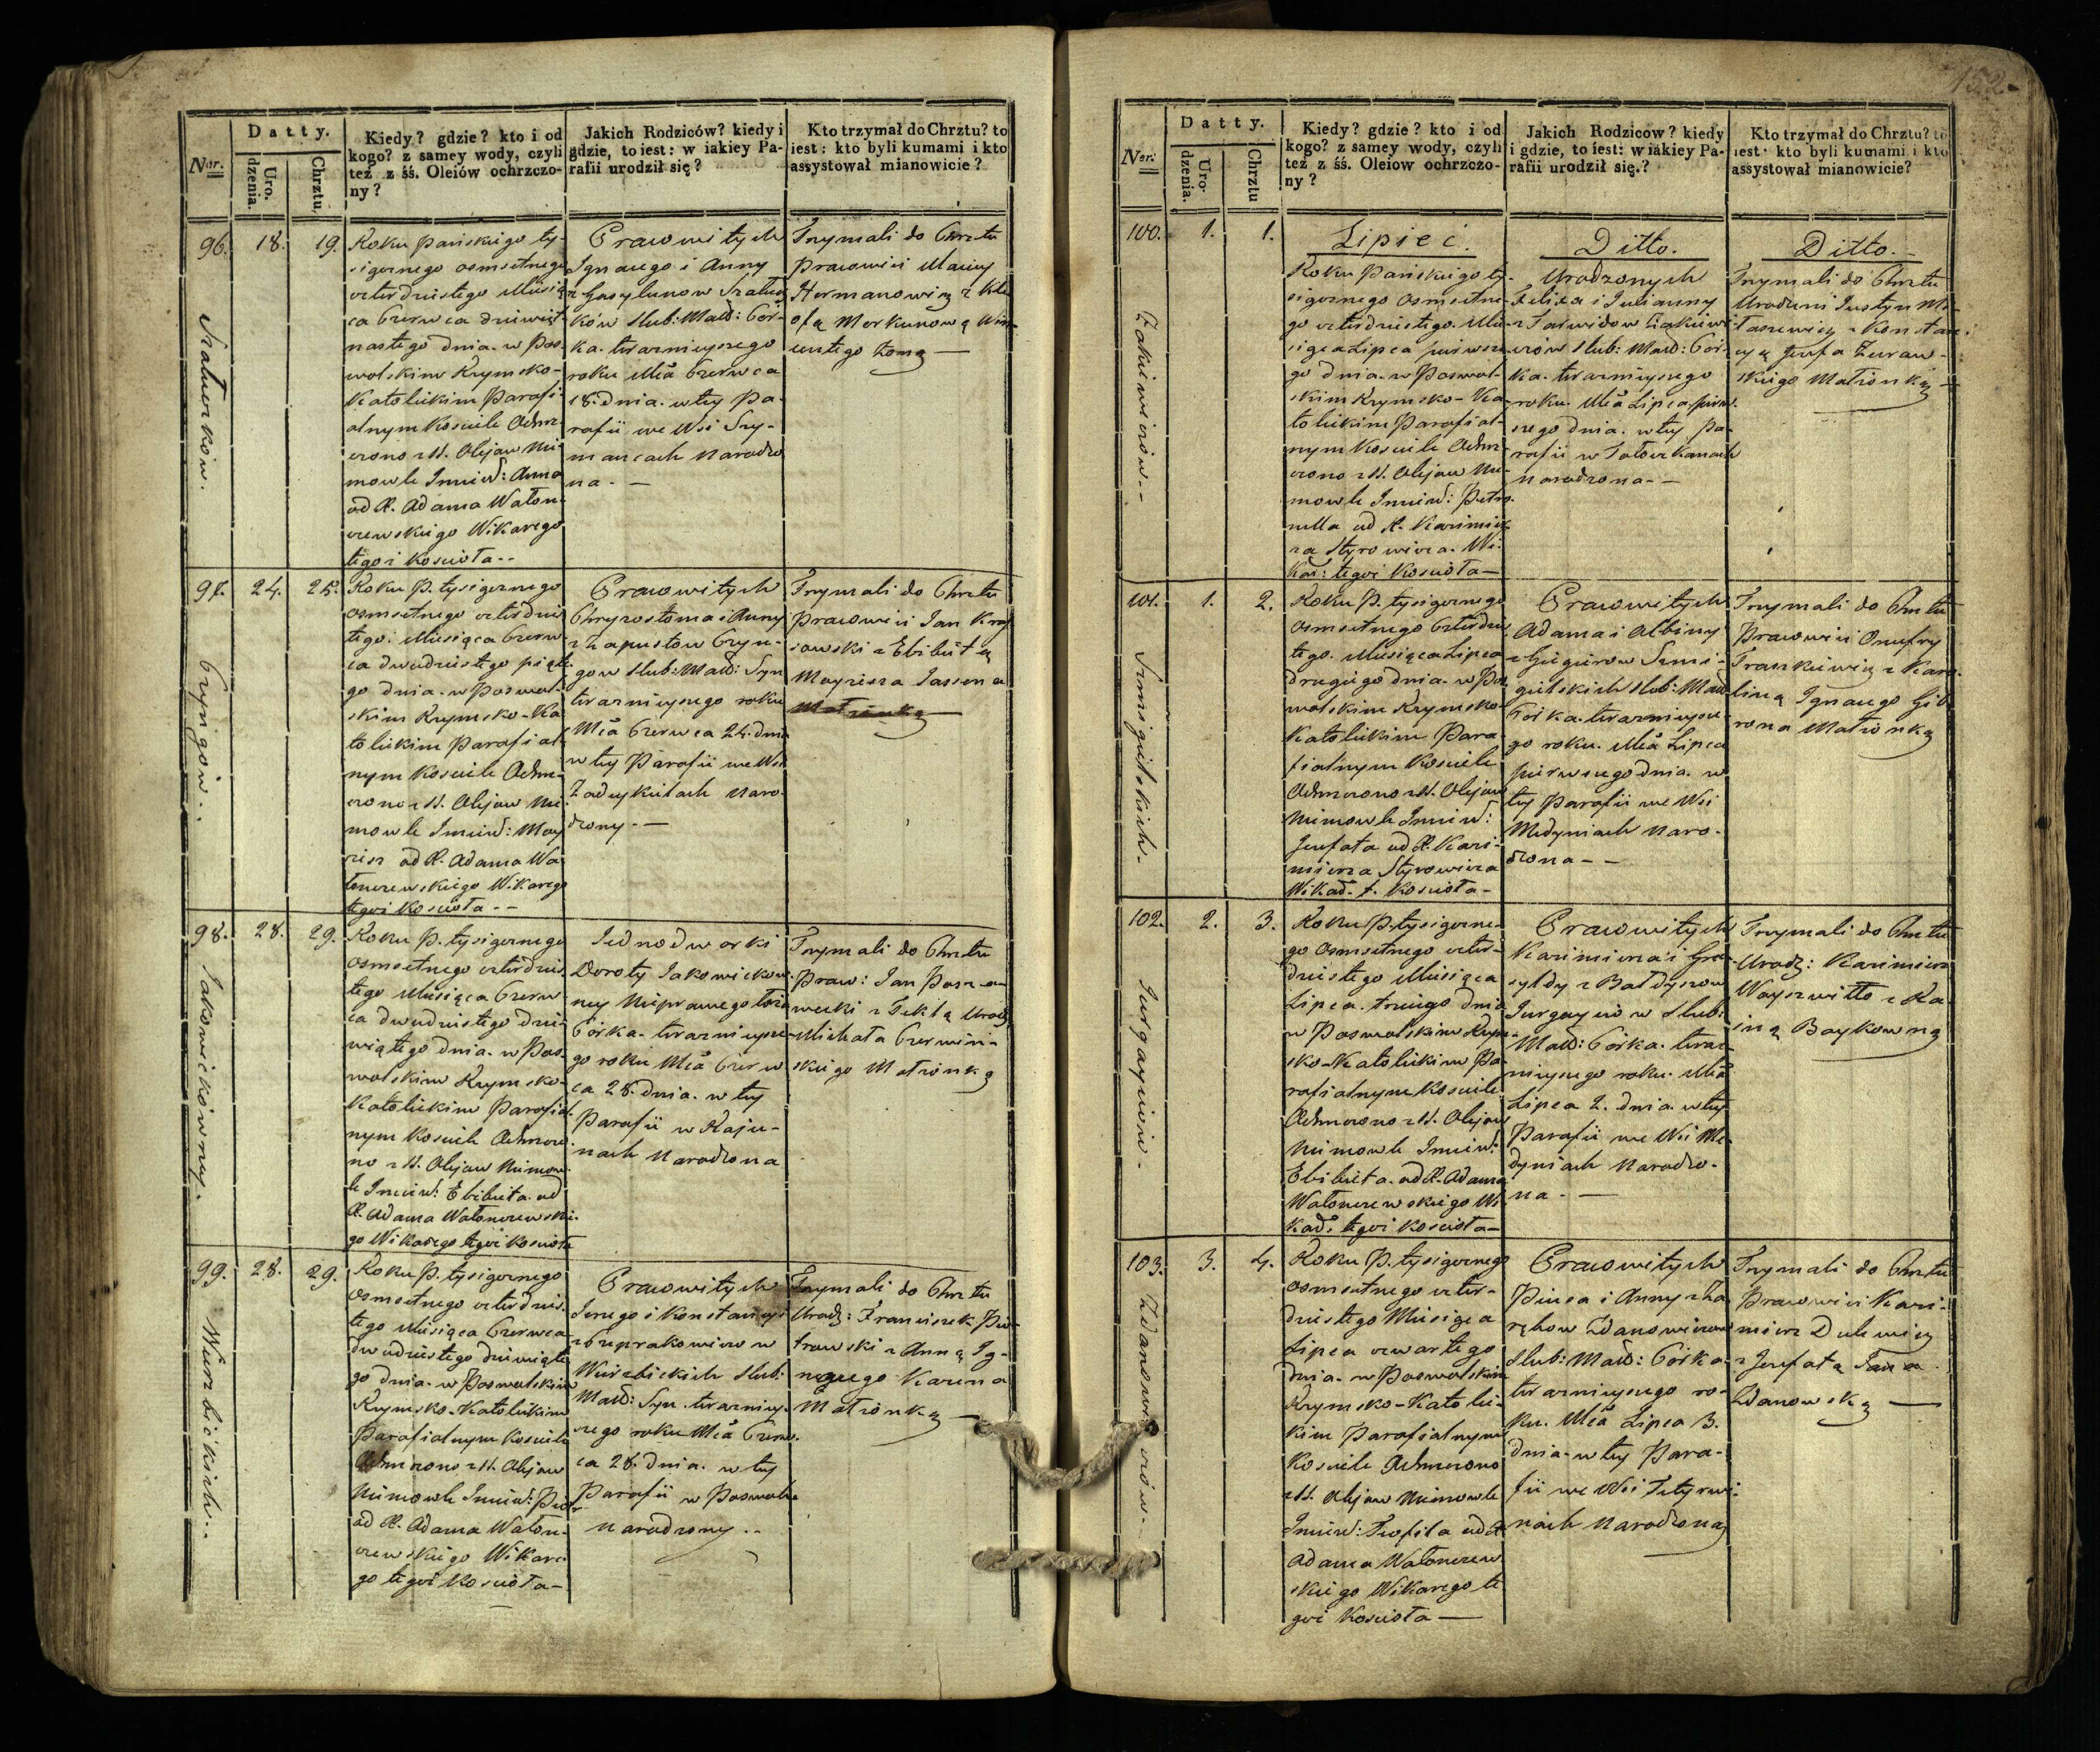 152.
Datty.
Nør.
Uro.
dzenia.
Chrztu.
Kiedy? gdzie? kto i od
kogo? z samey wody, czyli
też z śś. Oleiów ochrzczo-
ny?
Jakich Rodziców? kiedy i
gdzie, to iest: w iakiey Pa-
rafii urodził się?
Kto trzymał do Chrztu? to
iest: kto byli kumami i kto
assystował mianowicie?
96.
18.
19.
Roku Pańskiego ty-
siącznego osmsetnego
czterdziestego Miesią
ca Czerwca dziewięt-
nastego dnia. w Pos-
wolskim Rzymsko-
Katolickim Parafi-
alnym Kosciele Ochrz-
czono z SS. Olejow Nie
mowle Imieni: Anna
od X. Adama Waton-
czewskiego Wikarego
tegoż Kościoła--
Prawowitych
Ignacego i Anny
z Gasylunow Szatur
ków Slub: Małż: Cór-
ka. teraznieyszego
roku Mca Czerwca
18. dnia. w tey Pa-
rafii we Wsi Szy-
mancach Narodzo
na.-
Trzymali do Chrztu
Prawowici Maciey
Hermanowicz z Kle
ofą Morkunową Win-
centego Zoną-
97.
24.
25.
Roku P. tysiącznego
osmsetnego czterdzies
tego. Miesiąca Czerw-
ca dwudziestego piąte
go dnia. w Poswol-
skim Rzymsko-Ka
tolickim Parafial-
nym Kosciele Ochrz-
czono z SS. Olejow Nie
mowle Imieni: Mau
ricy od X. Adama Wa
tonczewskiego Wikarego
tegoż Kościoła--
Prawowitych
Chryzostoma i Anny
z Łapustow Cryn-
gow Slub: Małż: Syn
teraznieyszego roku
Mca Czerwca 24. dnia
w tey Parafii we Wsi
Zadeykiach Naro-
dzony.-
Trzymali do Chrztu
Prawowici Jan Kras
sowski z Elżbietą
Mayrisza Jassena
98.
28.
29.
Roku P. tysiącznego
osmsetnego czterdzies
tego Miesiąca Czerw
ca dwudziestego dzie
wiątego dnia. w Pos-
wolskim Rzymsko-
Katolickim Parafial
nym Kosciele Ochrzczo
no z SS. Olejow Niemow-
le Imieni: Elżbieta. od
X. Adama Watonczewskie-
go Wikarego tegoż Kościoła
Jednodworki
Doroty Jakowickow-
ney Nieprawego łoża
Córka. teraznieysze-
go roku Mca Czerw
ca 28. dnia. w tey
Parafii w Raju-
nach Narodzona
Trzymali do Chrztu
Praw: Jan Posza-
wecki z Teklą Urodz:
Michała Czerwin-
skiego Małżonką
99.
28.
29.
Roku P. tysiącznego
osmsetnego czterdzies-
tego Miesiąca Czerwca
dwudziestego dziewiąte
go dnia. w Poswolskim
Rzymsko-Katolickim
Parafialnym Kosciele
Ochrzczono z SS. Olejow
Niemowle Imieni: Piotr
od X. Adama Waton-
czewskiego Wikare
go tegoż Kościoła-
Prawowitych
Jerzego i Konstancyi
z Cuprakowiczow
Wierzbickich Slub:
Małż: Syn. terazniey-
szego roku Mca Czerw-
ca 28. dnia. w tey
Parafii w Poswolu
Narodzony..
Trzymali do Chrztu
Urodz: Franciszek Pio-
trowski z Anną Ig-
nacego Karena
Małżonką-
Szaturków.
Cryngow.
Jakowickówney.
Wierzbickich.
Datty.
Ner.
Uro-
dzenia.
Chrztu
Kiedy? gdzie? kto i od
kogo? z samey wody, czyli
też z śś. Oleiow ochrzczo-
ny?
Jakich Rodziców? kiedy
i gdzie, to iest: w iakiey Pa-
rafii urodził się.?
Kto trzymał do Chrztu? to
iest: kto byli kumami i kto
assystował mianowicie?
100.
1.
1.
Lipiec.
Roku Pańskiego ty-
siącznego osmsetne-
go czterdziestego. Mie-
siąca Lipca pierwsze-
go dnia. w Poswol-
skim Rzymsko-Ka-
tolickim Parafial-
nym Kosciele Ochrz-
czono z SS. Olejow Nie-
mowle Imieni: Petro-
nella od X. Kazimie-
rza Styrowicza. Wi-
kar: tegoż Kościoła-
Ditto.
Urodzonych
Felixa i Julianny
z Tarwidow Zakiewi-
czów Slub: Małż: Cór-
ka. teraznieyszego
roku. Mca Lipca pierw-
szego dnia. w tey Pa-
rafii w Totoczkanach
Narodzona--
Ditto.
Trzymali do Chrztu
Urodzeni Justyn Mi-
taszewicz z Konstan-
cyą Jozefa Zuraw-
skiego Małżonką-
101.
1.
2.
Roku P. tysiącznego
osmsetnego czterdzies
tego. Miesiąca Lipca
drugiego dnia. w Pos
wolskim Rzymsko
Katolickim Para
fialnym Kosciele
Ochrzczono z SS. Olejow
Niemowle Imieni:
Jozefata od X. Kazi-
mierza Styrowicza
Wikar. t. Kościoła-
Prawowitych
Adama i Albiny
z Gieguzow Szmi-
gielskich Slub: Małż
Córka. teraznieysze-
go roku. Mca Lipca
pierwszego dnia. w
tey Parafii we Wsi
Medyniach Naro-
dzona--
Trzymali do Chrztu
Prawowici Onufry
Traszkiewicz z Karo-
liną Ignacego Gib
rona Małżonką
102.
2.
3.
Roku P. tysiączne-
go osmsetnego czter-
dziestego Miesiąca
Lipca. trzeciego dnia
w Poswolskim Rzym-
sko-Katolickim Pa-
rafialnym Kosciele
Ochrzczono z SS. Olejow
Niemowle Imieni:
Elżbieta. od X. Adama
Watonczewskiego Wi
kar. tegoż Kościoła-
Prawowitych
Kazimierza i Gra-
syldy z Bałdyszow
Jurgayciow Slub:
Małż: Córka. teraz-
nieyszego roku. Mca
Lipca 2. dnia. w tey
Parafii we Wsi Me-
dyniach Narodzo-
na.-
Trzymali do Chrztu
Urodz: Kazimierz
Wayszwiłło z Ka-
zią Baykowną
103.
3.
4.
Roku P. tysiącznego
osmsetnego czter-
dziestego Miesiąca
Lipca czwartego
dnia. w Poswolskim
Rzymsko-Katolic-
kim Parafialnym
Kosciele Ochrzczono
z SS. Olejow Niemowle
Imieni: Teofila od X
Adama Watonczew
skiego Wikarego te
goż Kościoła-
Prawowitych
Piusa i Anny z Za
rębow Zdanowiczow
Slub: Małż: Córka.
teraznieyszego ro-
ku. Mca Lipca 3.
dnia. w tey Para-
fii we Wsi Tetyrwi-
nach Narodzona
Trzymali do Chrztu
Prawowici Kazi-
mierz Dulewicz
z Jozefatą Jana
Zdanowską-
Zakiewiczów.-
Szmigielskich.
Jurgayciow.
Zdanowiczów.-